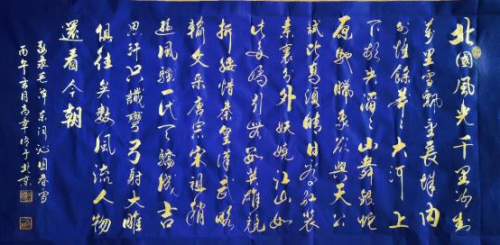 北國風光千里冰封
萬里雪飄望長城内
外惟餘莽莽大河上
下頓失滔滔山舞銀蛇
原馳蠟象欲與天公
試比高須晴日看紅裝
素裹分外妖嬈江山如
此多嬌引無數英雄競
折腰惜秦皇漢武略
輸文采唐宗宋祖稍
遜風騷一代天驕成吉
思汗只識彎弓射大雕
俱往矣數風流人物
還看今朝
毛泽东词沁园春雪
丙午 月 北京